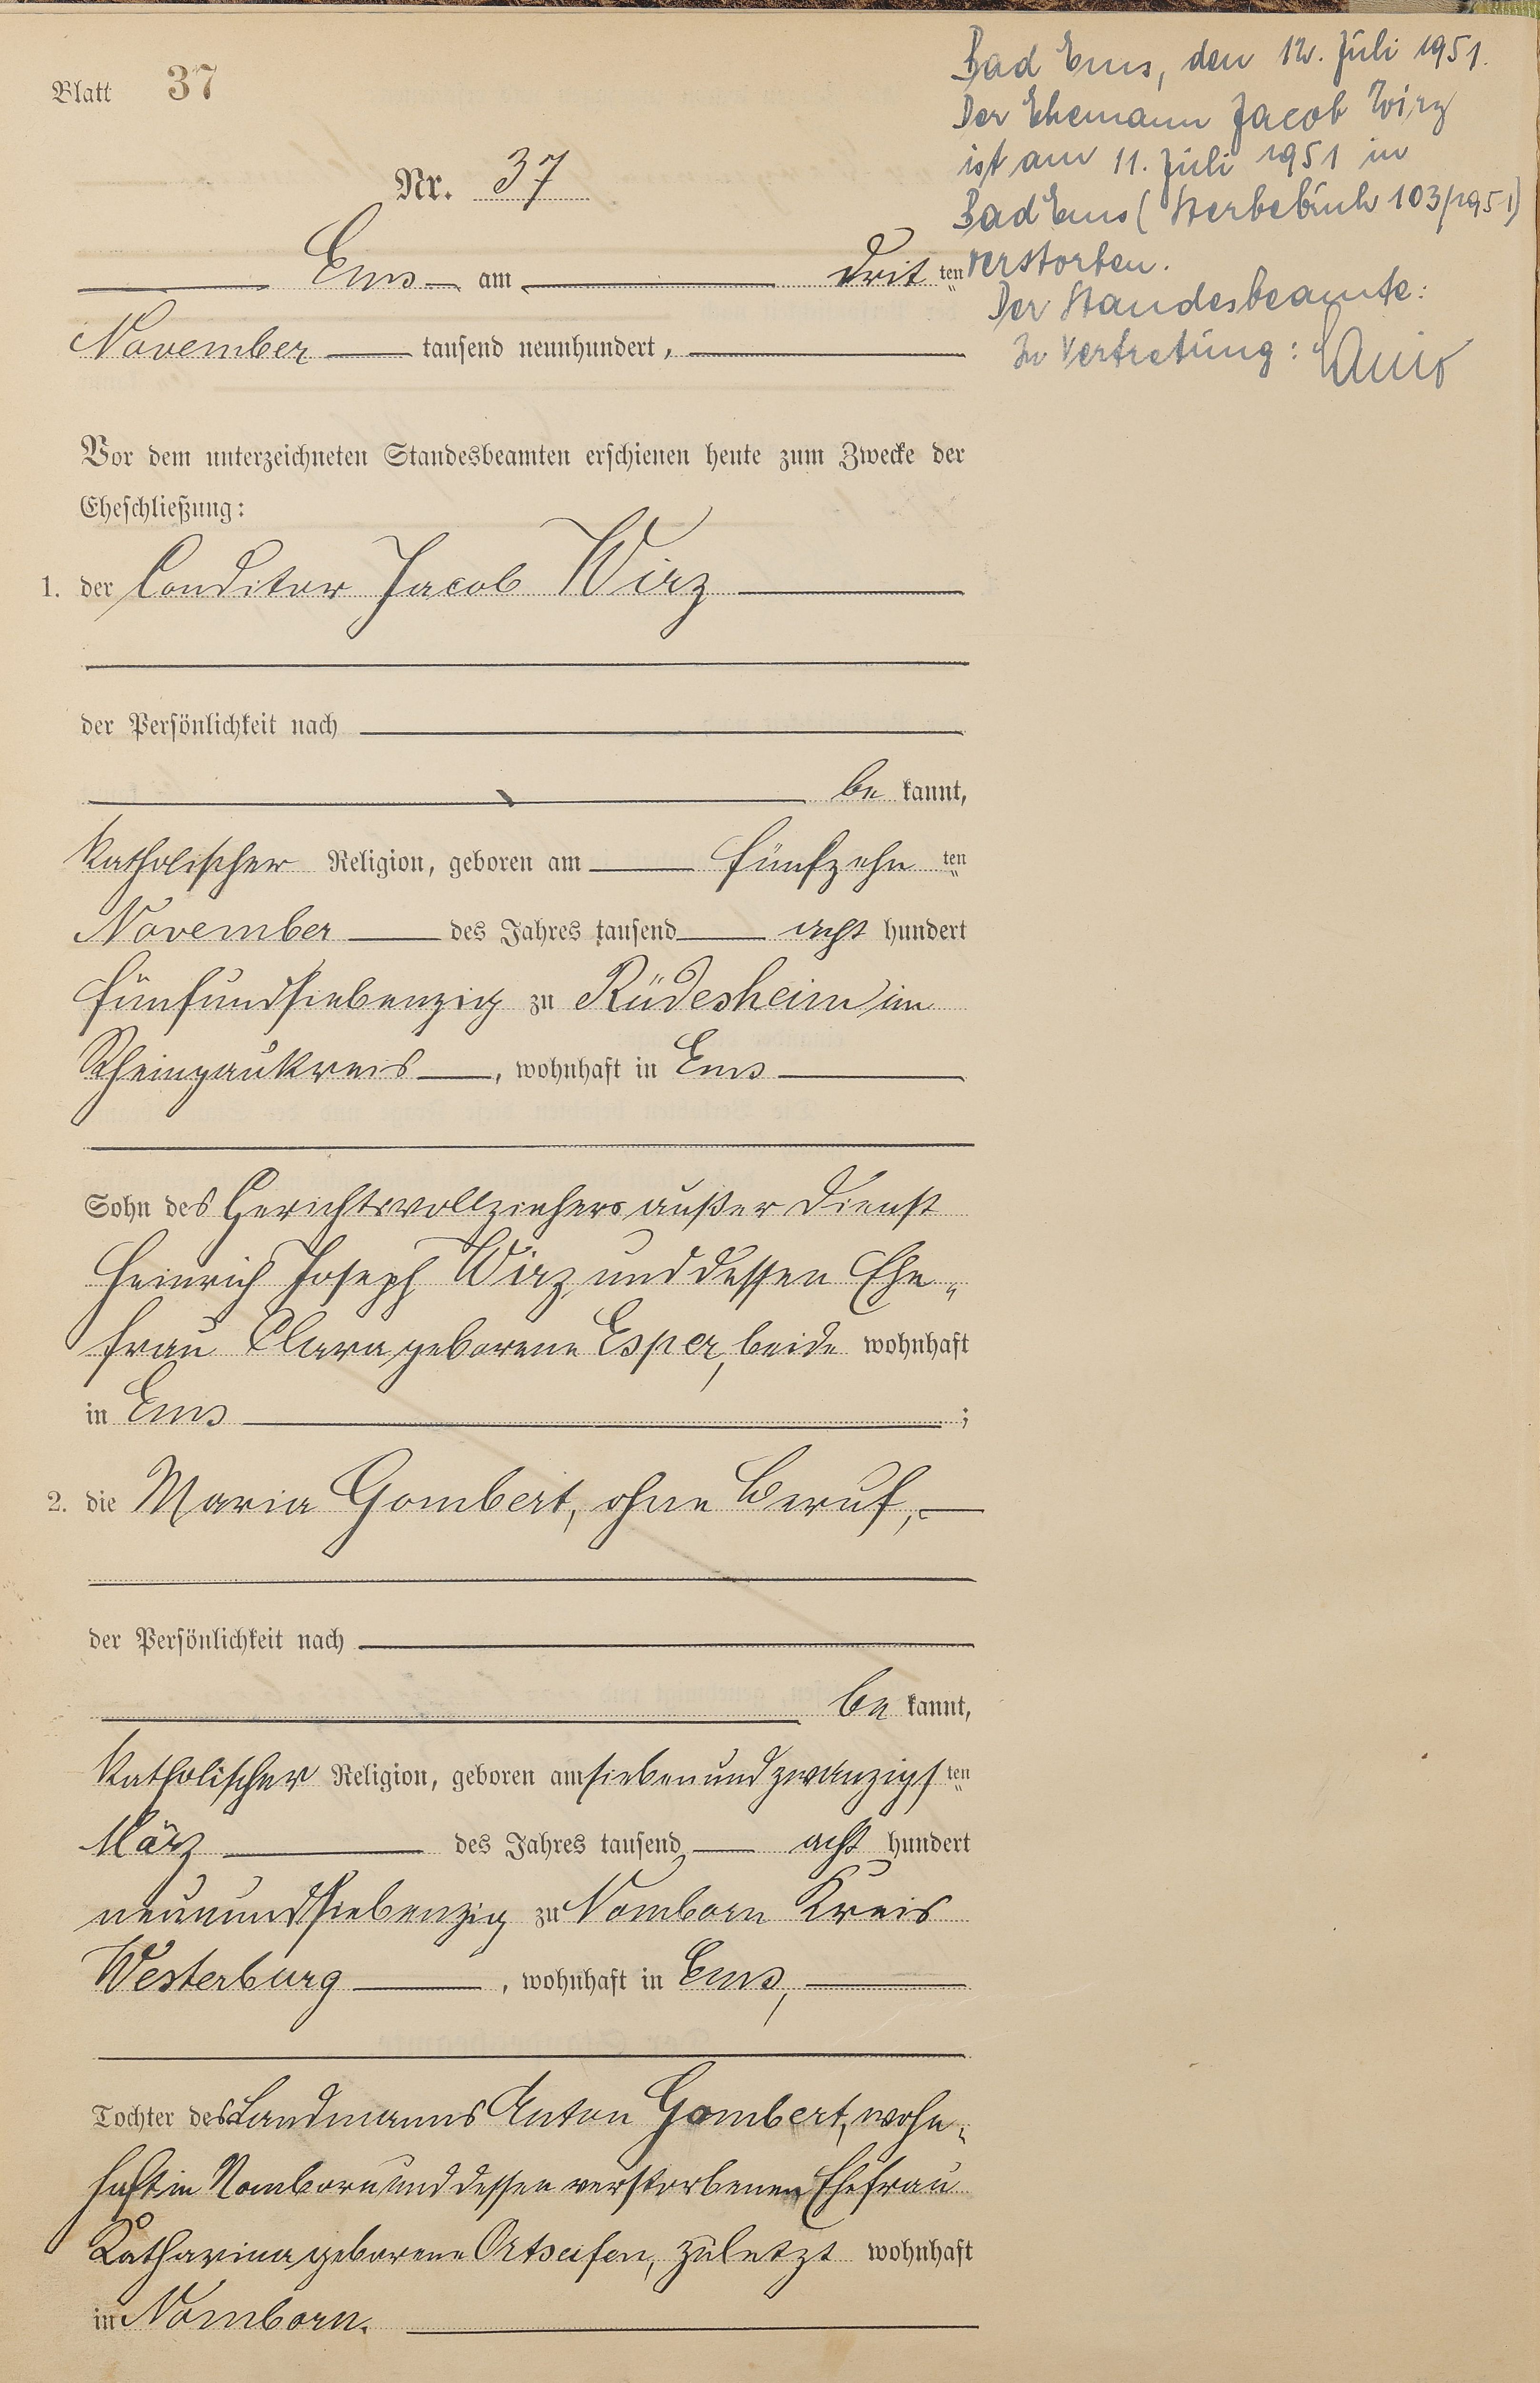 Blatt 37
Nr. 37
Ems am drit ten
November tausend neunhundert,
Vor dem unterzeichneten Standesbeamten erschienen heute zum Zwecke der
Eheschließung:
1. der Conditor Jacob Wirz
der Persönlichkeit nach
be kannt,
katholischer Religion, geboren am fünfzehn ten
November des Jahres tausend acht hundert
fünfundsiebenzig zu Rüdesheim im
Rheingaukreis, wohnhaft in Ems
Sohn des Gerichtsvollziehers außer Dienst
Heinrich Joseph Wirz und dessen Ehe„
frau Clara geborene Esper, beide wohnhaft
in Ems ;
2. die Maria Gombert, ohne Beruf,
der Persönlichkeit nach
be kannt,
katholischer Religion, geboren am siebenundzwanzigs ten
März des Jahres tausend acht hundert
neunundsiebenzig zu Nomborn Kreis
Westerburg, wohnhaft in Ems,
Tochter des Landmanns Anton Gombert, wohn„
haft in Nomborn und dessen verstorbenen Ehefrau
Katharina geborene Ortseifen, zuletzt wohnhaft
in Nomborn.
Bad Ems, den 12. Juli 1951.
Der Ehemann Jacob Wirz
ist am 11. Juli 1951 in
Bad Ems (Sterbebuch 103/1951)
verstorben.
Der Standesbeamte:
In Vertretung: